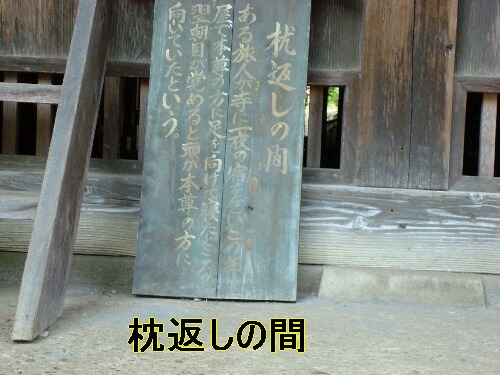 枕返しの間
ある旅人が寺に一夜の宿を
屋で本尊の方に足を向けて寝たところ
翌朝目が覚めると頭が本尊の方に
向いていたという。
枕返しの間